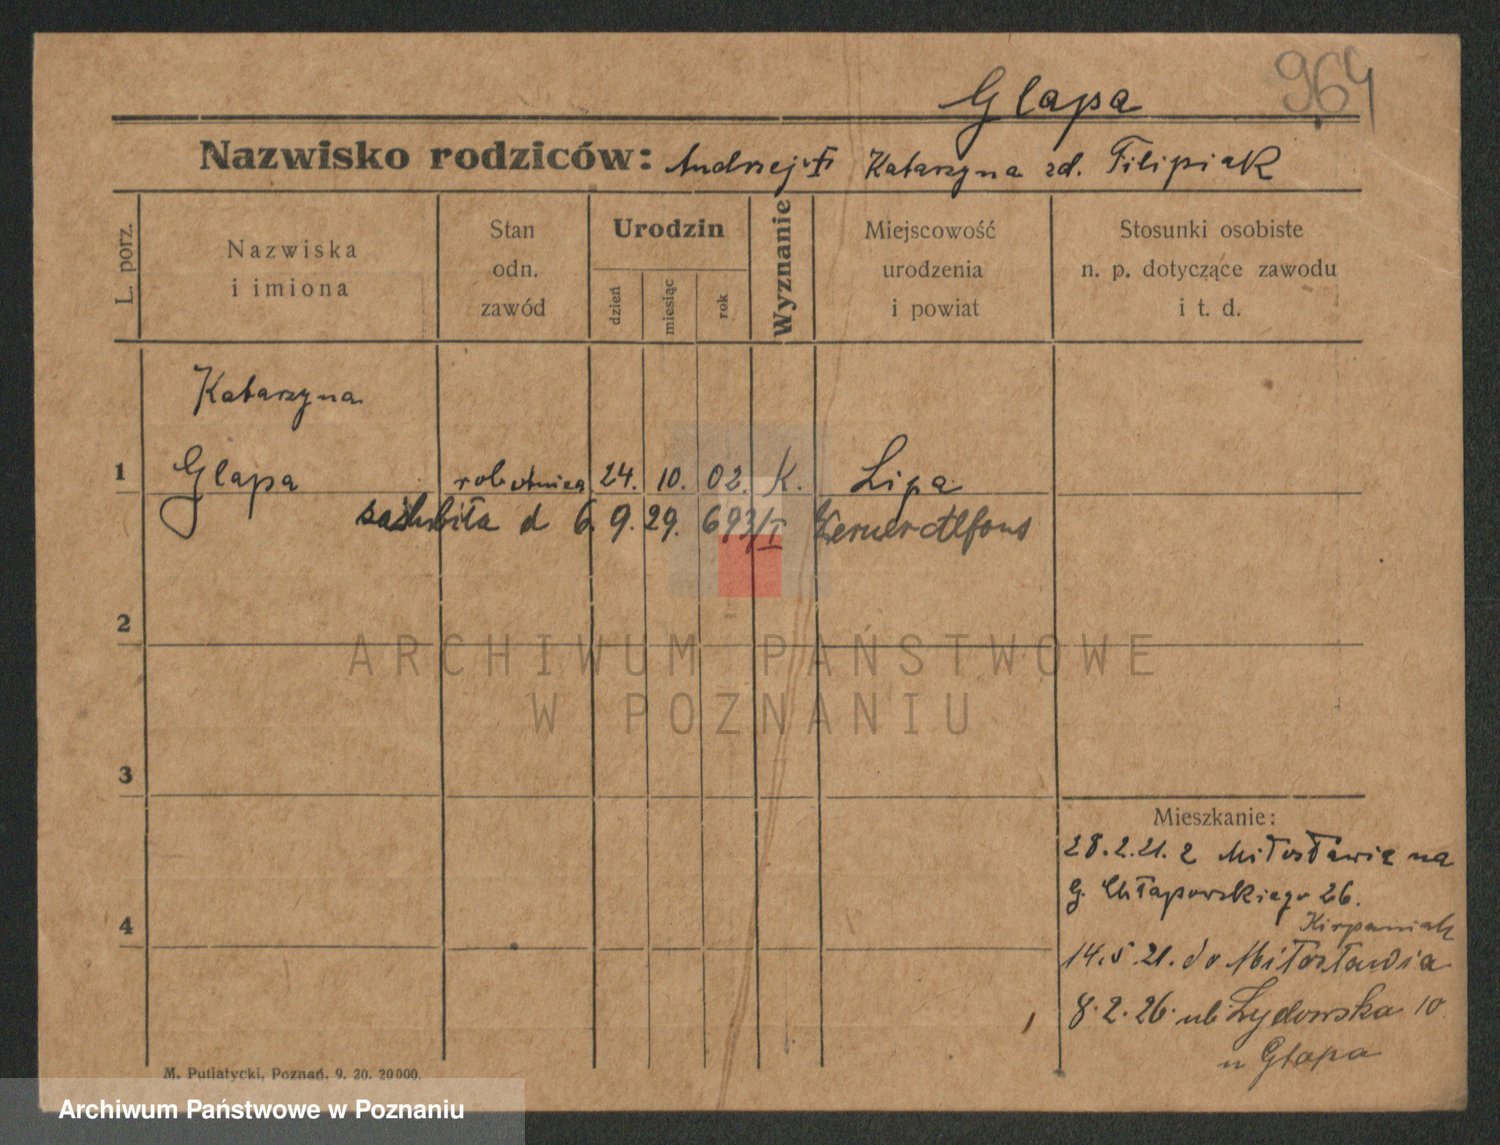 964
Glapa
Nazwisko rodziców: Andrzej i Katarzyna zd. Filipiak
L. porz.
Nazwiska
i imiona
Stan
odn.
zawód
Urodzin
dzień
miesiąc
rok
Wyznanie
Miejscowość
urodzenia
i powiat
Stosunki osobiste
n. p. dotyczące zawodu
i t. d.
Katarzyna
1 Glapa robotnica 24. 10. 02. K. Lipa
zaślubiła d 6. 9. 29. 693/I Alfons
2
ARCHIWUM PAŃSTWOWE
W POZNANIU
3
Mieszkanie:
28.2.21. z Miłosławia na
G. Chłapowskiego 26.
4
14.5.21. do Miłosławia
8.2.26. ul. Żydowska 10
u Glapa
M. Putiatycki, Poznań. 9. 20. 20000.
Archiwum Państwowe w Poznaniu